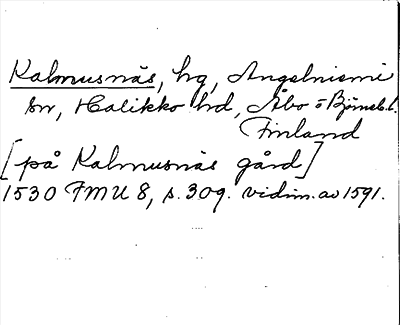 Kalmusnäs, hg, Angelniemi
sn, Halikko hd, Åbo o Björneb. l.
Finland
[på Kalmusnäs gård]
1530 FMU 8, s. 309. vidim. av 1591.